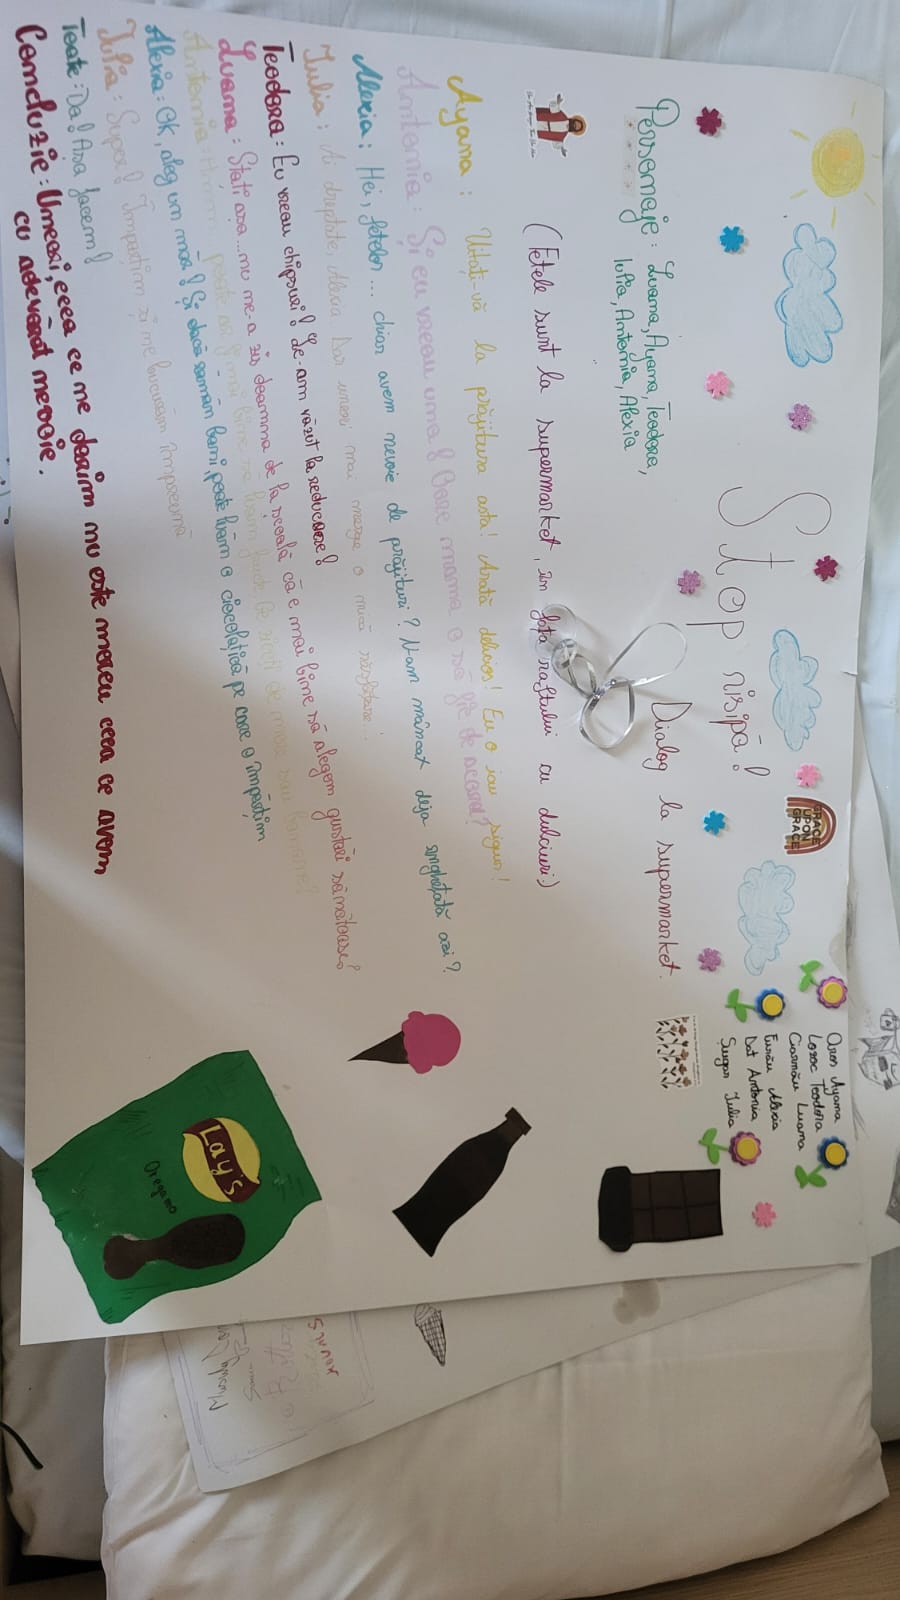 Stop risipă!
Dialog la supermarket.
Oros Ayana
Lozoc Teodora
Ciarmău Luana
Dat Antonia
Sugar Iulia
GRACE
UPON
GRACE
Personaje: Luana, Ayana, Teodora,
Iulia, Antonia, Alexia
(Fetele sunt la supermarket, în fața raftului cu dulciuri)
Ayana: Uitați-vă la prăjitura asta! Arată delicios! Eu o iau sigur!
Antonia: Și eu vreau una! Oare mama o să fie de acord?
Alexia: Hei, fetelor... chiar avem nevoie de prăjituri? N-am mâncat deja înghețată azi?
Iulia: Ai dreptate, Alexia. Dar uneori mai merge o mică răsfățare...
Teodora: Eu vreau chipsuri! Le-am văzut la reducere!
Luana: Stați așa... ne-a zis doamna de la școală că e mai bine să alegem gustări sănătoase!
Antonia: Hmm, poate ar fi mai bine să luăm fructe. Ce ziceți de mere sau banane?
Alexia: OK, aleg un măr! Și dacă rămân bani, poate luăm o ciocolățică pe care o împărțim
Iulia: Super! Împărțim și ne bucurăm împreună
Toate: Da! Așa facem!
Concluzie: Uneori, ceea ce ne dorim nu este mereu ceea ce avem
cu adevărat nevoie.
Lay's
Oregano